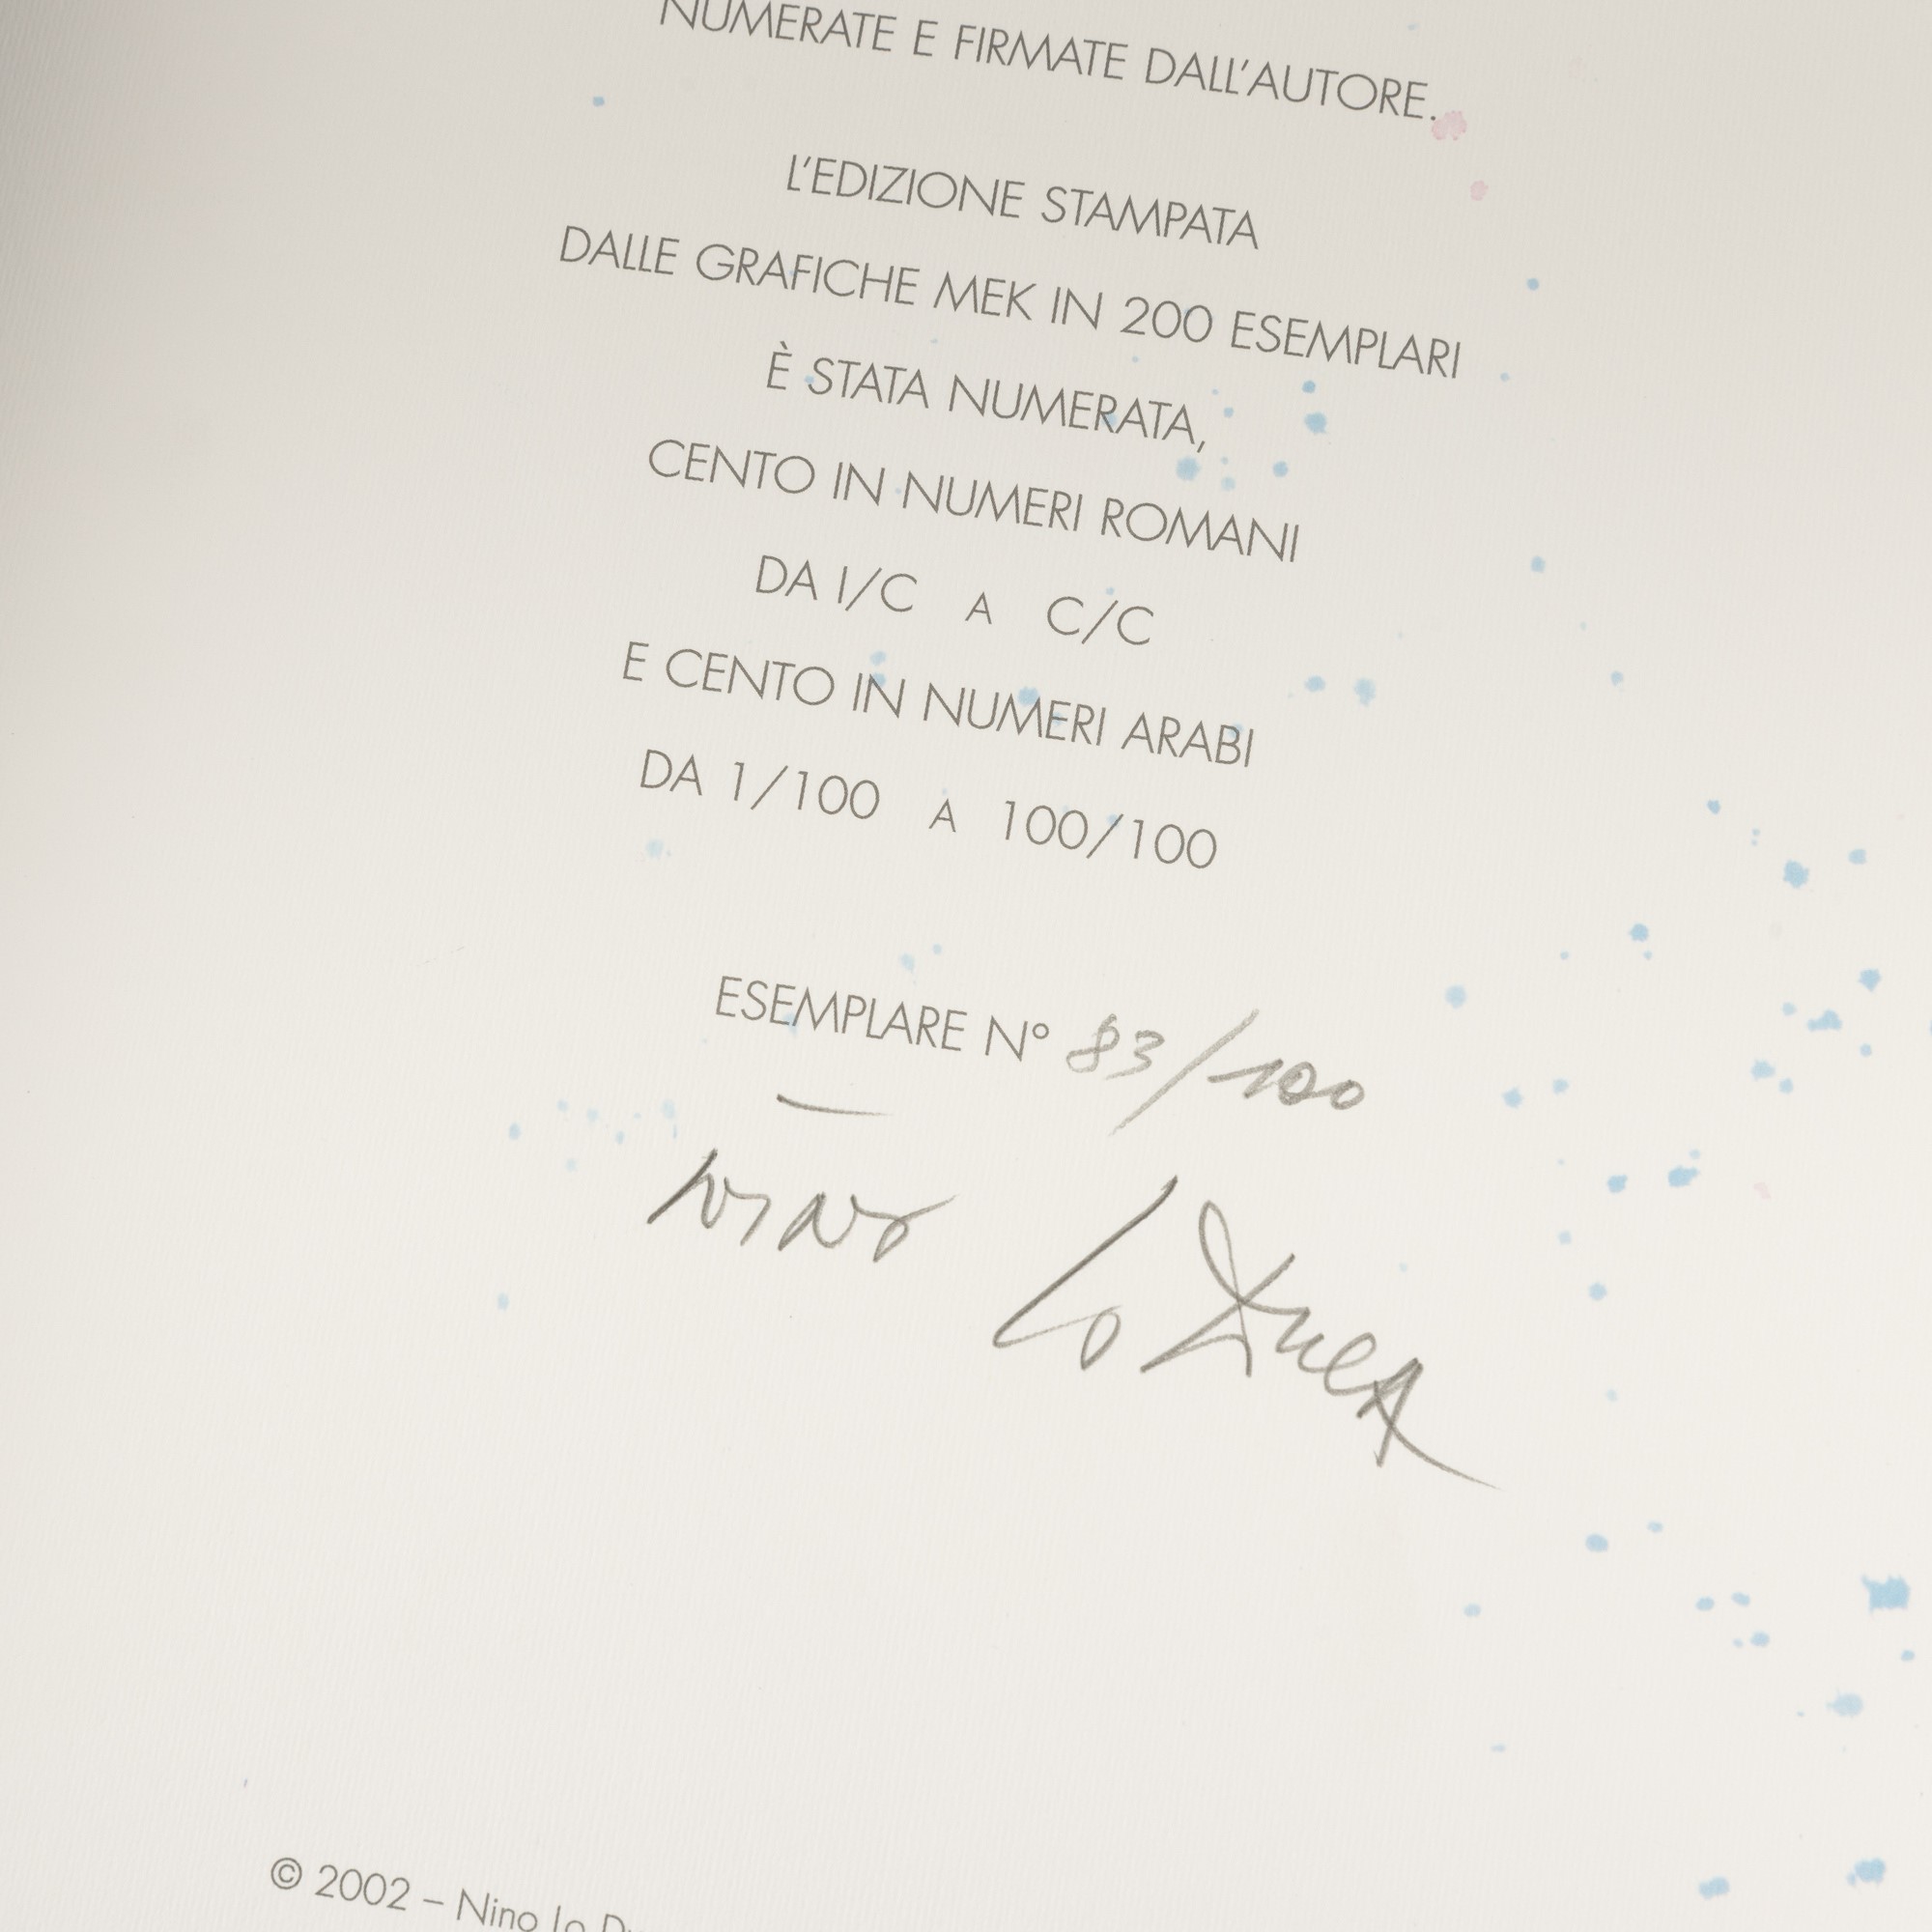 NUMERATE E FIRMATE DALL'AUTORE.
L'EDIZIONE STAMPATA
DALLE GRAFICHE MEK IN 200 ESEMPLARI
È STATA NUMERATA,
CENTO IN NUMERI ROMANI
DA I/C A C/C
E CENTO IN NUMERI ARABI
DA 1/100 A 100/100
ESEMPLARE N° 83/100
Nino Lo Duca
© 2002 – Nino Lo